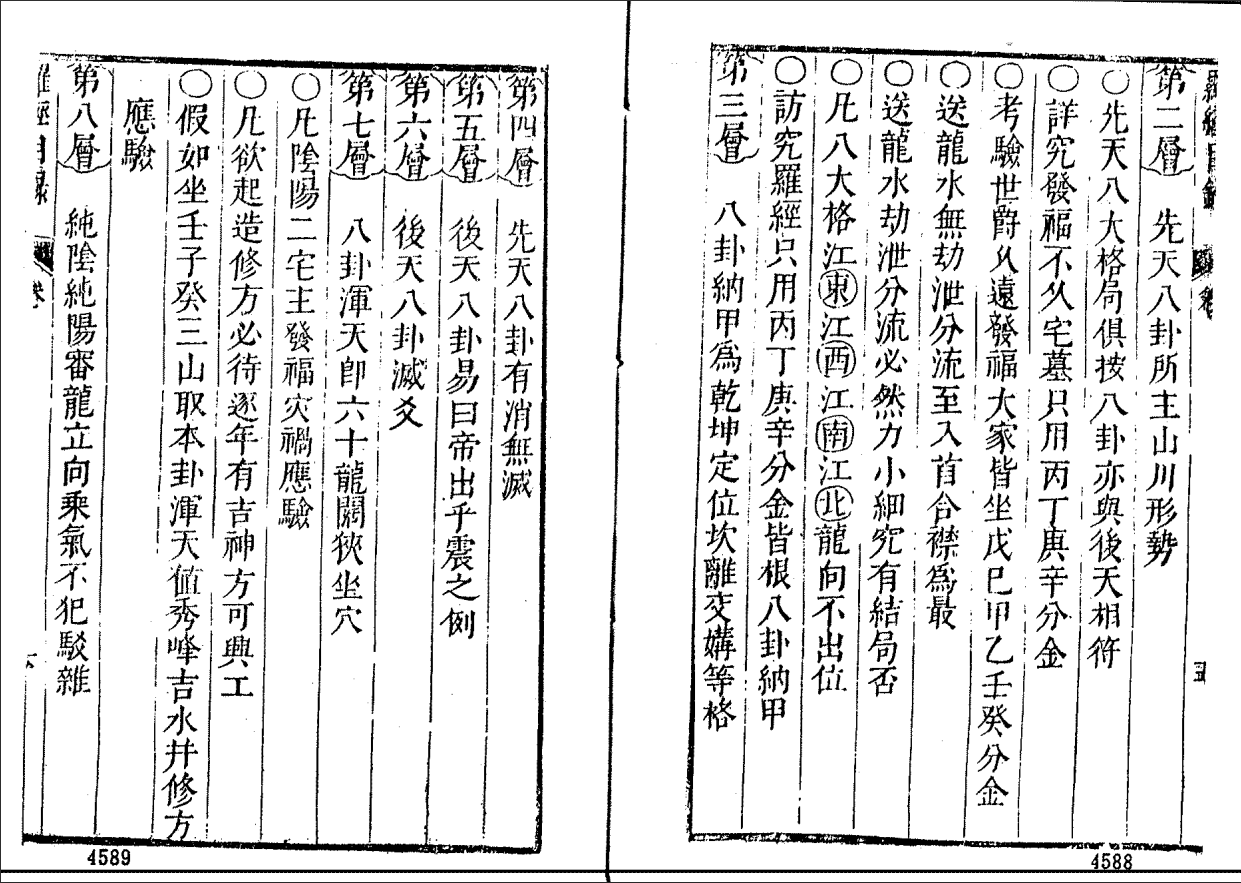 第二層 先天八卦所主山川形勢
○先天八大格局俱按八卦亦與後天相符
○詳究發福不久宅墓只用丙丁庚辛分金
○考驗世爵久遠發福大家皆坐戊巳甲乙壬癸分金
○送龍水無劫泄分流至入首合襟爲最
○送龍水劫泄分流必然力小細究有結局否
○凡八大格江東江西江南江北龍向不出位
○訪究羅經只用丙丁庚辛分金皆根八卦納甲
第三層 八卦納甲爲乾坤定位坎離交媾等格
五
4588
第四層 先天八卦有消無滅
第五層 後天八卦易曰帝出乎震之例
第六層 後天八卦滅爻
第七層 八卦渾天卽六十龍闊狹坐穴
○凡陰陽二宅主發福灾禍應驗
○凡欲起造修方必待逐年有吉神方可興工
○假如坐壬子癸三山取本卦渾天值秀峰吉水并修方
應驗
第八層 純陰純陽審龍立向乘氣不犯駁雜
4589